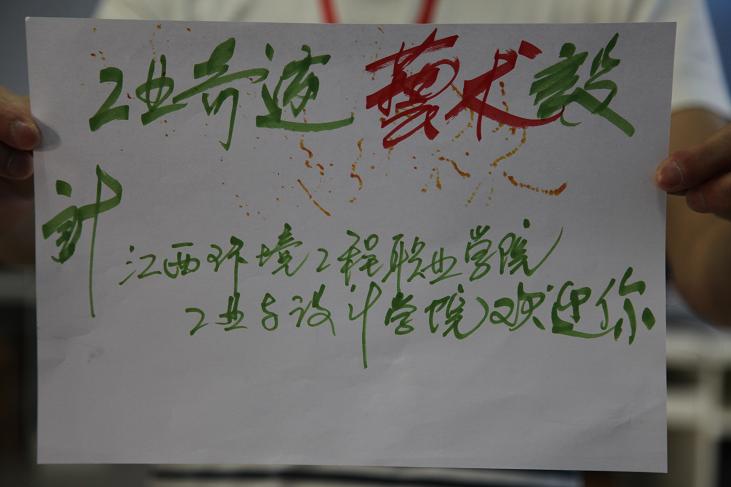 工业奇迹藝术設
計
江西环境工程职业学院
工业与设计学院欢迎你